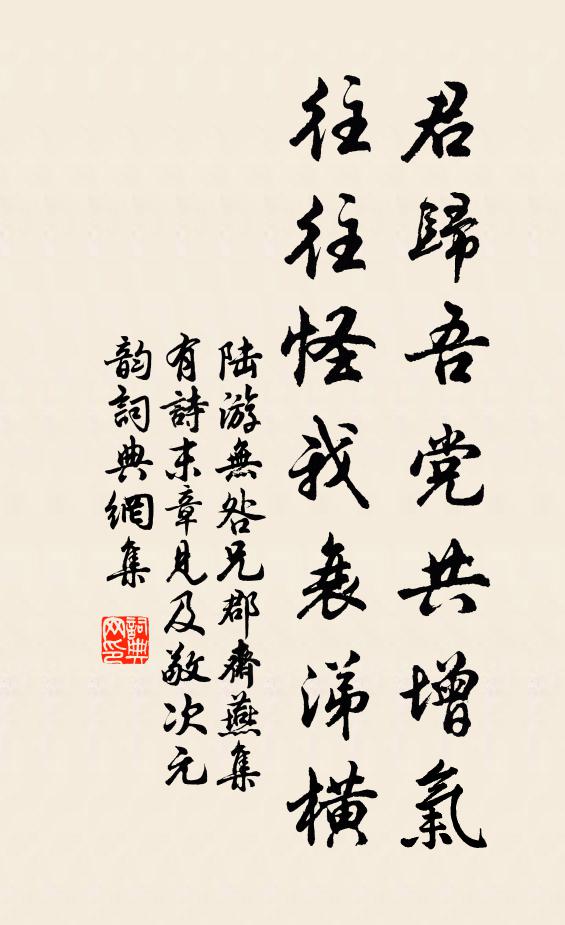 君歸吾党共增氣
往往怪我衰涕橫
陆游無咎兄郡齋燕集
有詩末章見及敬次元
韵詞典網集
詞典网印